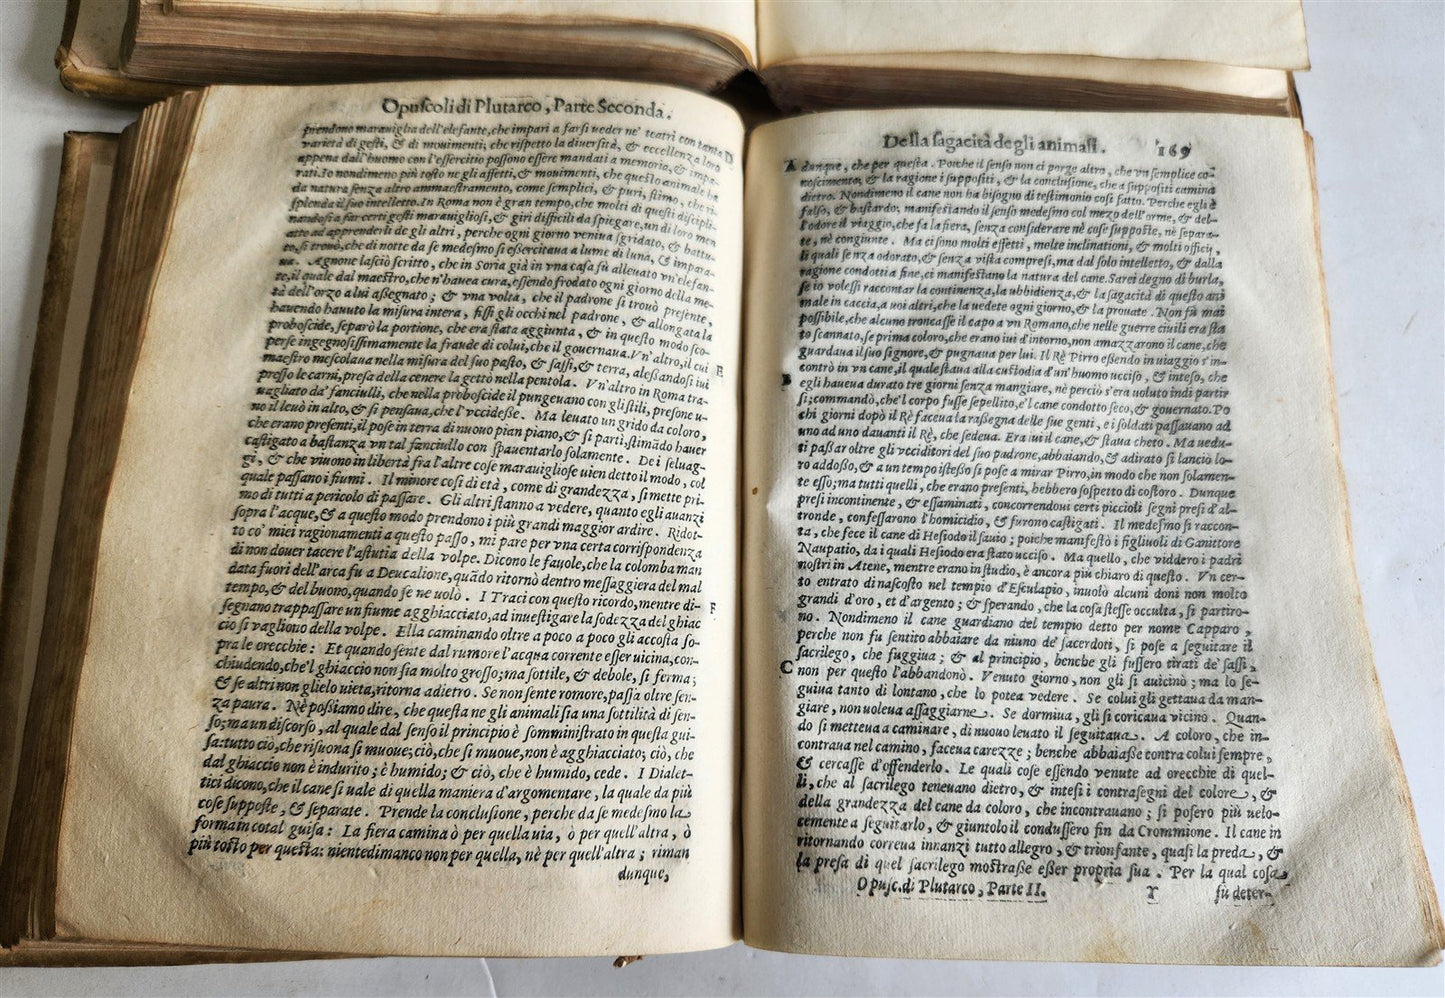 Opuſcoli di Plutarco, Parte Seconda.
prendono marauiglia dell'elefante, che impari a farſi ueder ne' teatri con tante
varietà di geſti, & di mouimenti; che riſpetto la diuerſità, & eccellenza loro
appena dall'huomo con l'eſſercitio poſſono eſſere mandati a memoria, & impa-
rati. Io nondimeno più toſto ne gli affetti, & mouimenti, che queſto animale ha
da natura ſenza altro ammaeſtramento, come ſemplici, & puri, ſtimo, che ri-
ſplenda il ſuo intelletto. In Roma non è gran tempo, che molti di queſti diſcipli-
nandoſi a far certi geſti marauiglioſi, & giri difficili da ſpiegare, un di loro men
atto ad apprenderli de gli altri, perche ogni giorno veniua ſgridato, & battu-
to, ſi trouò, che di notte da ſe medeſmo ſi eſſercitaua a lume di luna, & impara-
ua. Agnone laſciò ſcritto, che in Soria già in vna caſa fù alleuato vn'elefan-
te, il quale dal maeſtro, che n'hauea cura, eſſendo frodato ogni giorno della me-
tà dell'orzo a lui aßegnato; & vna volta, che il padrone ſi trouò preſente,
hauendo hauuto la miſura intera, fiſſi gli occhi nel padrone, & allongata la
proboſcide, ſeparò la portione, che era ſtata aggiunta, & in queſto modo ſco-
perſe ingegnoſiſſimamente la fraude di colui, che il gouernaua. Vn'altro, il cui
maeſtro meſcolaua nella miſura del ſuo paſto, & ſaſſi, & terra, aleßandoſi iui
preſſo le carni, preſa della cenere la gettò nella pentola. Vn'altro in Roma tra-
uagliato da' fanciulli, che nella proboſcide il pungeuano con gli ſtili, preſone u-
no il leuò in alto, & ſi penſaua, che l'vccideße. Ma leuato un grido da coloro,
che erano preſenti, il poſe in terra di nuouo pian piano, & ſi parti, ſtimãdo hauer
caſtigato a baſtanza vn tal fanciullo con ſpauentarlo ſolamente. Dei ſeluag-
gi, & che viuono in libertà fra l'altre coſe marauiglioſe uien detto il modo, col
quale paſſano i fiumi. Il minore coſi di età, come di grandezza, ſi mette pri-
mo di tutti a pericolo di paſſare. Gli altri ſtanno a vedere, quanto egli auanzi
ſopra l'acque, & a queſto modo prendono i più grandi maggior ardire. Ridot-
to co' miei ragionamenti a queſto paſſo, mi pare per vna certa corriſpondenza
di non douer tacere l'aſtutia della volpe. Dicono le fauole, che la colomba man
data fuori dell'arca fu a Deucalione, quãdo ritornò dentro meſſaggiera del mal
tempo, & del buono, quando ſe ne uolò. I Traci con queſto ricordo, mentre di-
ſegnano trappaſſare un fiume agghiacciato, ad inueſtigare la ſodezza del ghiac
cio ſi vagliono della volpe. Ella caminando oltre a poco a poco gli accoſta ſo-
pra le orecchie: Et quando ſente dal rumore l'acqua corrente eſſer uicina, con-
chiudendo, che'l ghiaccio non ſia molto groſſo; ma ſottile, & debole, ſi ferma;
& ſe altri non glielo uieta, ritorna adietro. Se non ſente romore, paſſa oltre ſen-
za paura. Nè poßiamo dire, che queſta ne gli animali ſia una ſottilità di ſen-
ſo; ma un diſcorſo, al quale dal ſenſo il principio è ſomminiſtrato in queſta gui-
ſa: tutto ciò, che riſuona ſi muoue; ciò, che ſi muoue, non è agghiacciato; ciò, che
dal ghiaccio non è indurito; è humido; & ciò, che è humido, cede. I Dialet-
tici dicono, che il cane ſi uale di quella maniera d'argomentare, la quale da più
coſe ſuppoſte, & ſeparate. Prende la concluſione, perche da ſe medeſmo la
forma in cotal guiſa: La fiera camina ò per quella uia, ò per quell'altra, ò
più toſto per queſta: nientedimanco non per quella, nè per quell'altra; riman
dunque,
D
E
F
Della ſagacità de gli animali. 169
A dunque, che per queſta. Poiche il ſenſo non ci porge altro, che vn ſemplice co-
noſcimento, & la ragione i ſuppoſiti, & la concluſione, che a ſuppoſiti camina
dietro. Nondimeno il cane non ha biſogno di teſtimonio coſi fatto. Perche egli è
falſo, & baſtardo; manifeſtando il ſenſo medeſmo col mezo dell'orme, & del-
l'odore il viaggio, che fa la fiera, ſenza conſiderare nè coſe ſuppoſte, nè ſepara-
te, nè congiunte. Ma ci ſono molti effetti, molte inclinationi, & molti officij,
li quali ſenza odorato, & ſenza viſta compreſi, ma dal ſolo intelletto, & dalla
ragione condotti a fine, ci manifeſtano la natura del cane. Sarei degno di burla,
ſe io voleſſi raccontar la continenza, la ubbidienza, & la ſagacità di queſto ani
male in caccia, a uoi altri, che la uedete ogni giorno, & la prouate. Non fù mai
poſſibile, che alcuno troncaſſe il capo a vn Romano, che nelle guerre ciuili era ſta
to ſcannato, ſe prima coloro, che erano iui d'intorno, non amazzarono il cane, che
guardaua il ſuo ſignore, & pugnaua per lui. Il Rè Pirro eſſendo in uiaggio s'in-
contrò in vn cane, il quale ſtaua alla cuſtodia d'un'huomo ucciſo, & inteſo, che
B egli haueua durato tre giorni ſenza mangiare, nè perciò s'era uoluto indi partir
ſi; commandò, che'l corpo fuſſe ſepellito, e'l cane condotto ſeco, & gouernato. Po
chi giorni dopò il Rè faceua la raßegna delle ſue genti, e i ſoldati paſſauano ad
uno ad uno dauanti il Rè, che ſedeua. Era iui il cane, & ſtaua cheto. Ma uedu-
ti paßar oltre gli vcciditori del ſuo padrone, abbaiando, & adirato ſi lanciò lo-
ro addoßo, & a un tempo iſteßo ſi poſe a mirar Pirro, in modo che non ſolamen-
te eſſo; ma tutti quelli, che erano preſenti, hebbero ſoſpetto di coſtoro. Dunque
preſi incontinente, & eſſaminati, concorrendoui certi piccioli ſegni preſi d'al-
tronde, confeſſarono l'homicidio, & furono caſtigati. Il medeſmo ſi raccon-
ta, che fece il cane di Heſiodo il ſauio; poiche manifeſtò i figliuoli di Ganittore
Naupatio, da i quali Heſiodo era ſtato ucciſo. Ma quello, che viddero i padri
noſtri in Atene, mentre erano in ſtudio, è ancora più chiaro di queſto. Vn cer-
to entrato di naſcoſto nel tempio d'Eſculapio, inuolò alcuni doni non molto
grandi d'oro, et d'argento; & ſperando, che la coſa ſteſſe occulta, ſi partiro-
no. Nondimeno il cane guardiano del tempio detto per nome Capparo,
perche non fu ſentito abbaiare da niuno de' ſacerdoti, ſi poſe a ſeguitare il
ſacrilego, che fuggiua; & al principio, benche gli fuſſero tirati de' ſaſſi,
C non per queſto l'abbandonò. Venuto giorno, non gli ſi auicinò; ma lo ſe-
guiua tanto di lontano, che lo potea vedere. Se colui gli gettaua da man-
giare, non uoleua aſſaggiarne. Se dormiua, gli ſi coricaua vicino. Quan-
do ſi metteua a caminare, di nuouo leuato il ſeguitaua. A coloro, che in-
contraua nel camino, faceua carezze; benche abbaiaße contra colui ſempre,
& cercaſſe d'offenderlo. Le quali coſe eſſendo venute ad orecchie di quel-
li, che al ſacrilego teneuano dietro, & inteſi i contraſegni del colore, &
della grandezza del cane da coloro, che incontrauano; ſi poſero più uelo-
cemente a ſeguitarlo, & giuntolo il conduſſero fin da Crommione. Il cane in
ritornando correua innanzi tutto allegro, & trionfante, quaſi la preda, &
la preſa di quel ſacrilego moſtraße eßer propria ſua. Per la qual coſa
Opuſc. di Plutarco, Parte II. Y fù deter-